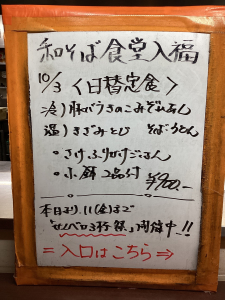 和そば食堂入福
10/3 〈日替定食〉
冷）豚バラきのこみぞれあん
温）きざみとじ そばうどん
・さけふりかけごはん
・小鉢2品付 ¥900.-
本日より、11(金)まで
「せんべろ3杯祭」開催中!!
＝入口はこちら⇒